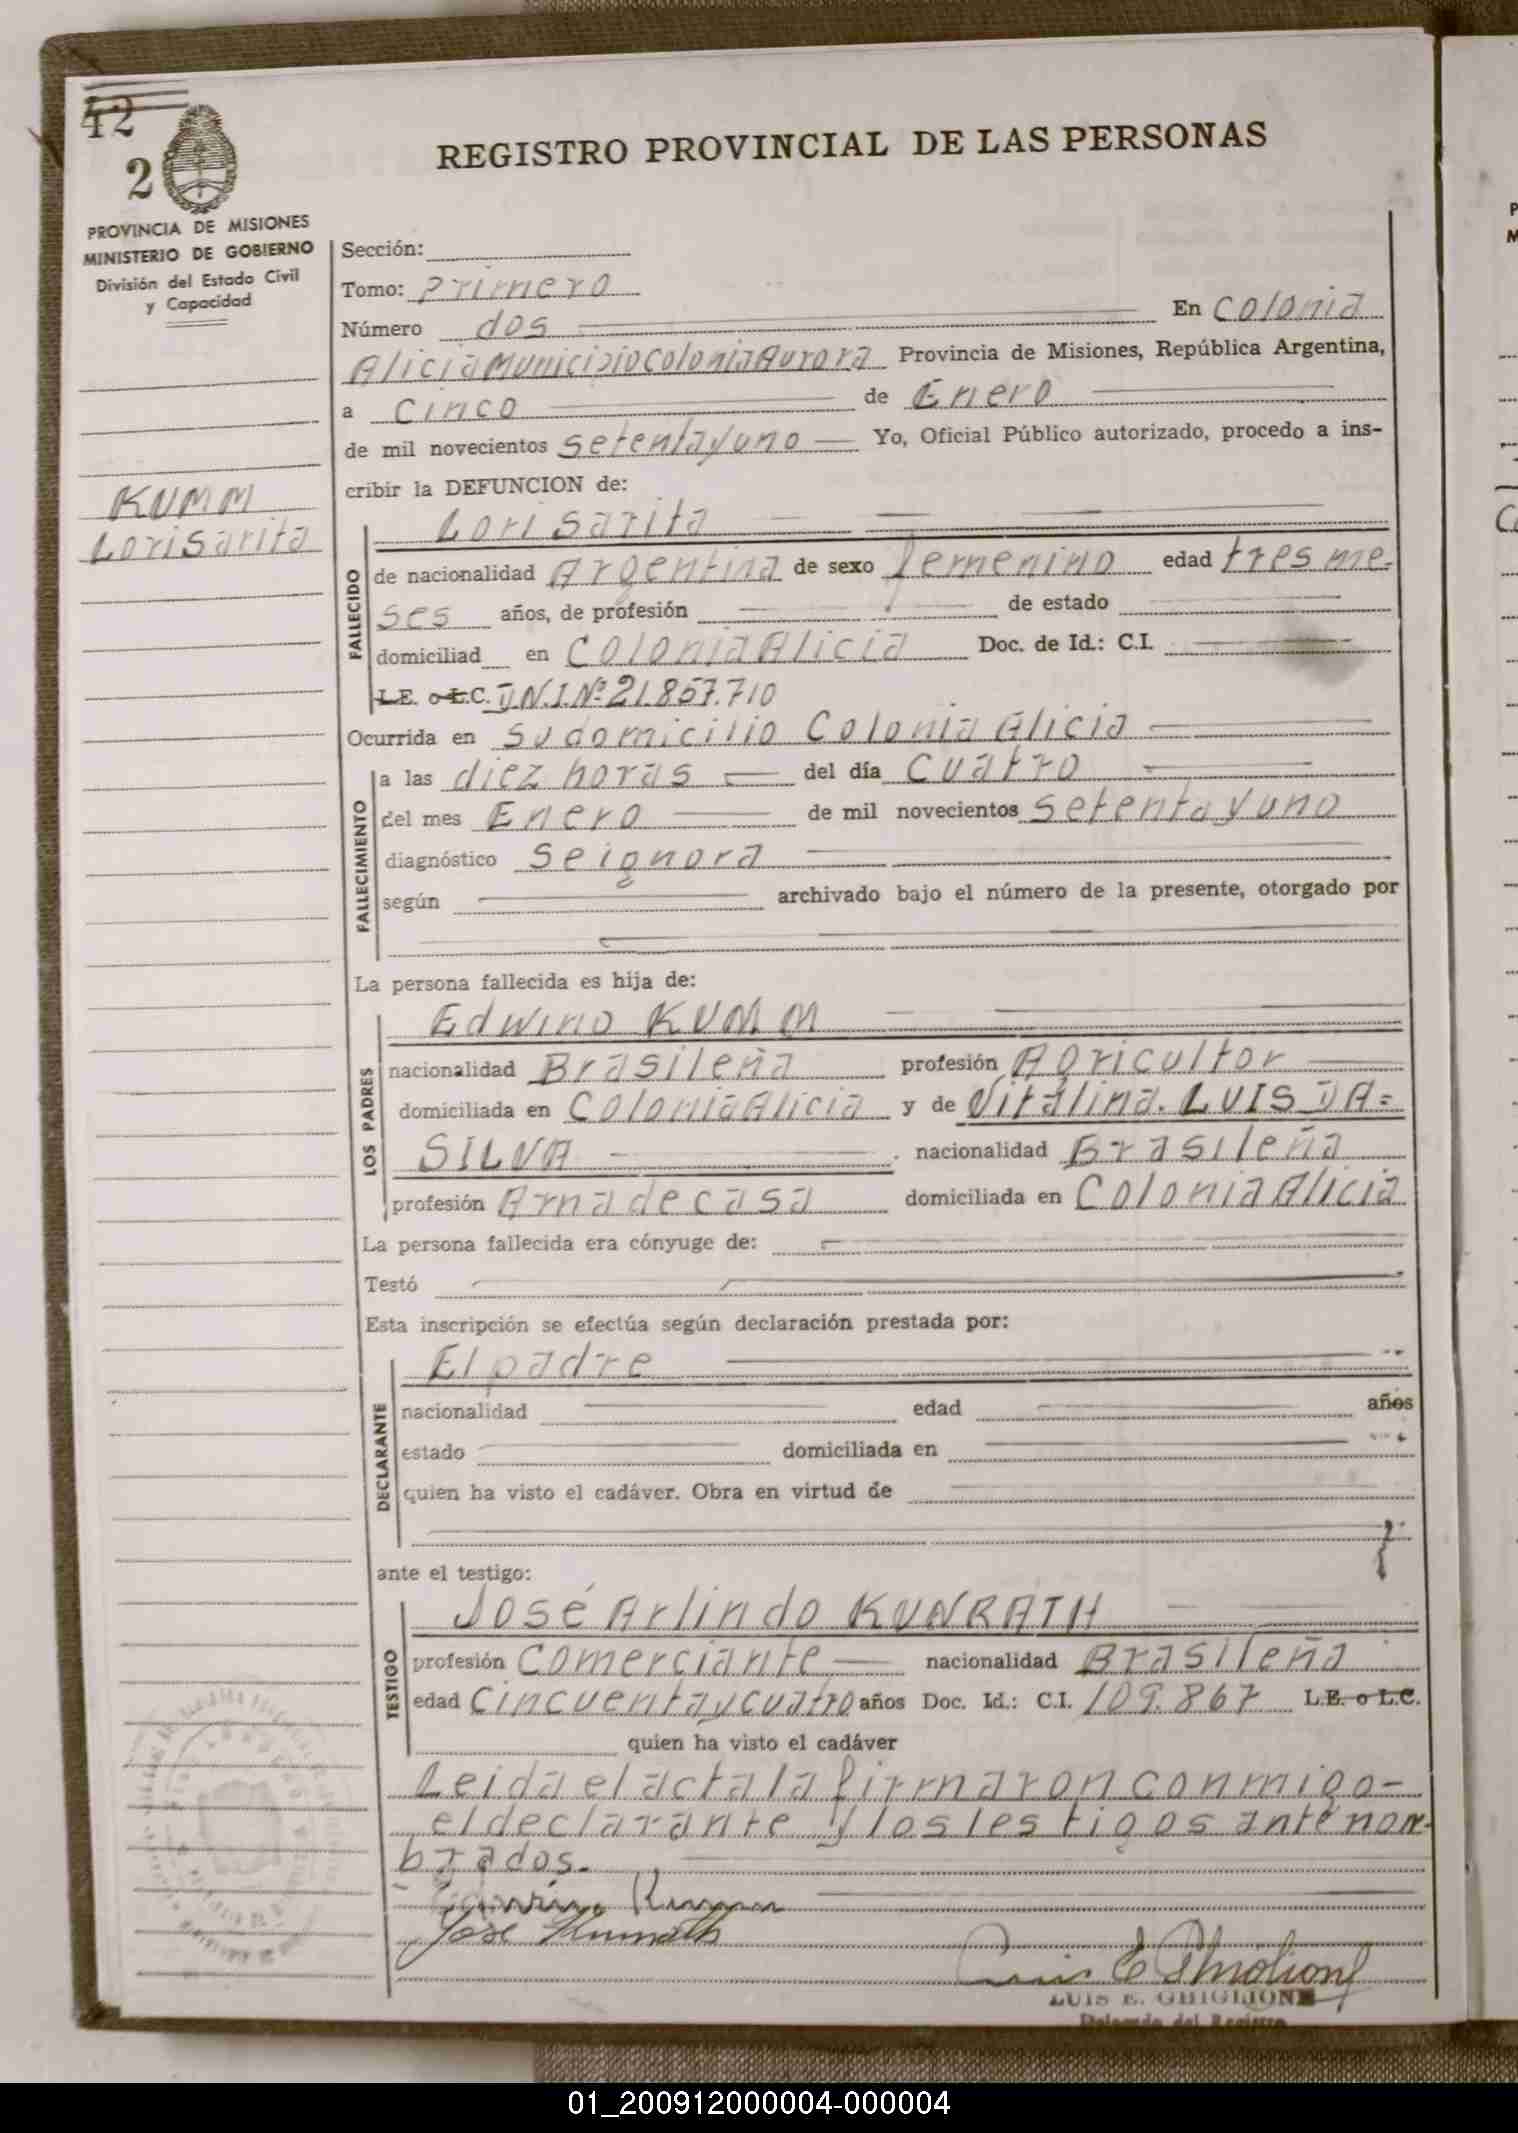 42
2
REGISTRO PROVINCIAL DE LAS PERSONAS
PROVINCIA DE MISIONES
MINISTERIO DE GOBIERNO
División del Estado Civil
y Capacidad
KUMM
Lori Sarita
Sección:
Tomo: Primero
Número dos En Colonia
Alicia Municipio Colonia Aurora Provincia de Misiones, República Argentina,
a Cinco de Enero
de mil novecientos setenta y uno Yo, Oficial Público autorizado, procedo a ins-
cribir la DEFUNCION de:
FALLECIDO
Lori Sarita
de nacionalidad Argentina de sexo femenino edad tres me-
ses años, de profesión de estado
domiciliad en Colonia Alicia Doc. de Id.: C.I.
L.E. o L.C. D.N.I. Nº 21.857.710
Ocurrida en su domicilio Colonia Alicia
FALLECIMIENTO
a las diez horas del día Cuatro
del mes Enero de mil novecientos setenta y uno
diagnóstico Se ignora
según archivado bajo el número de la presente, otorgado por
La persona fallecida es hija de:
LOS PADRES
Edwino KUMM
nacionalidad Brasileña profesión Agricultor
domiciliada en Colonia Alicia y de Vitalina. LUIS DA=
SILVA nacionalidad Brasileña
profesión Ama de casa domiciliada en Colonia Alicia
La persona fallecida era cónyuge de:
Testó
Esta inscripción se efectúa según declaración prestada por:
DECLARANTE
El padre
nacionalidad edad años
estado domiciliada en
quien ha visto el cadáver. Obra en virtud de
ante el testigo:
TESTIGO
José Arlindo KUNRATH
profesión Comerciante nacionalidad Brasileña
edad Cincuenta y cuatro años Doc. Id.: C.I. 109.867 L.E. o L.C.
quien ha visto el cadáver
Leida el acta la firmaron conmigo-
el declarante y los testigos ante nom-
brados.
Edwino Kumm
José Kunrath
Luis E Ghiglione
LUIS E. GHIGLIONE
Delegado del Registro
01_200912000004-000004